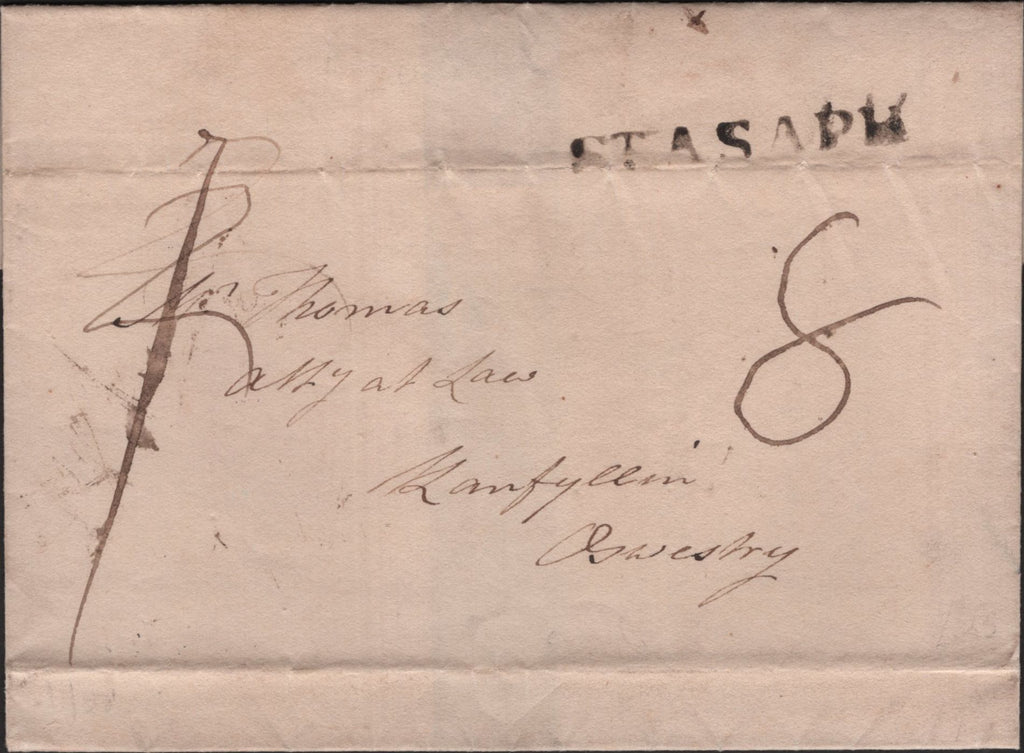 ST ASAPH
Mr Thomas
8
atty at Law
Llanfyllin
Oswestry